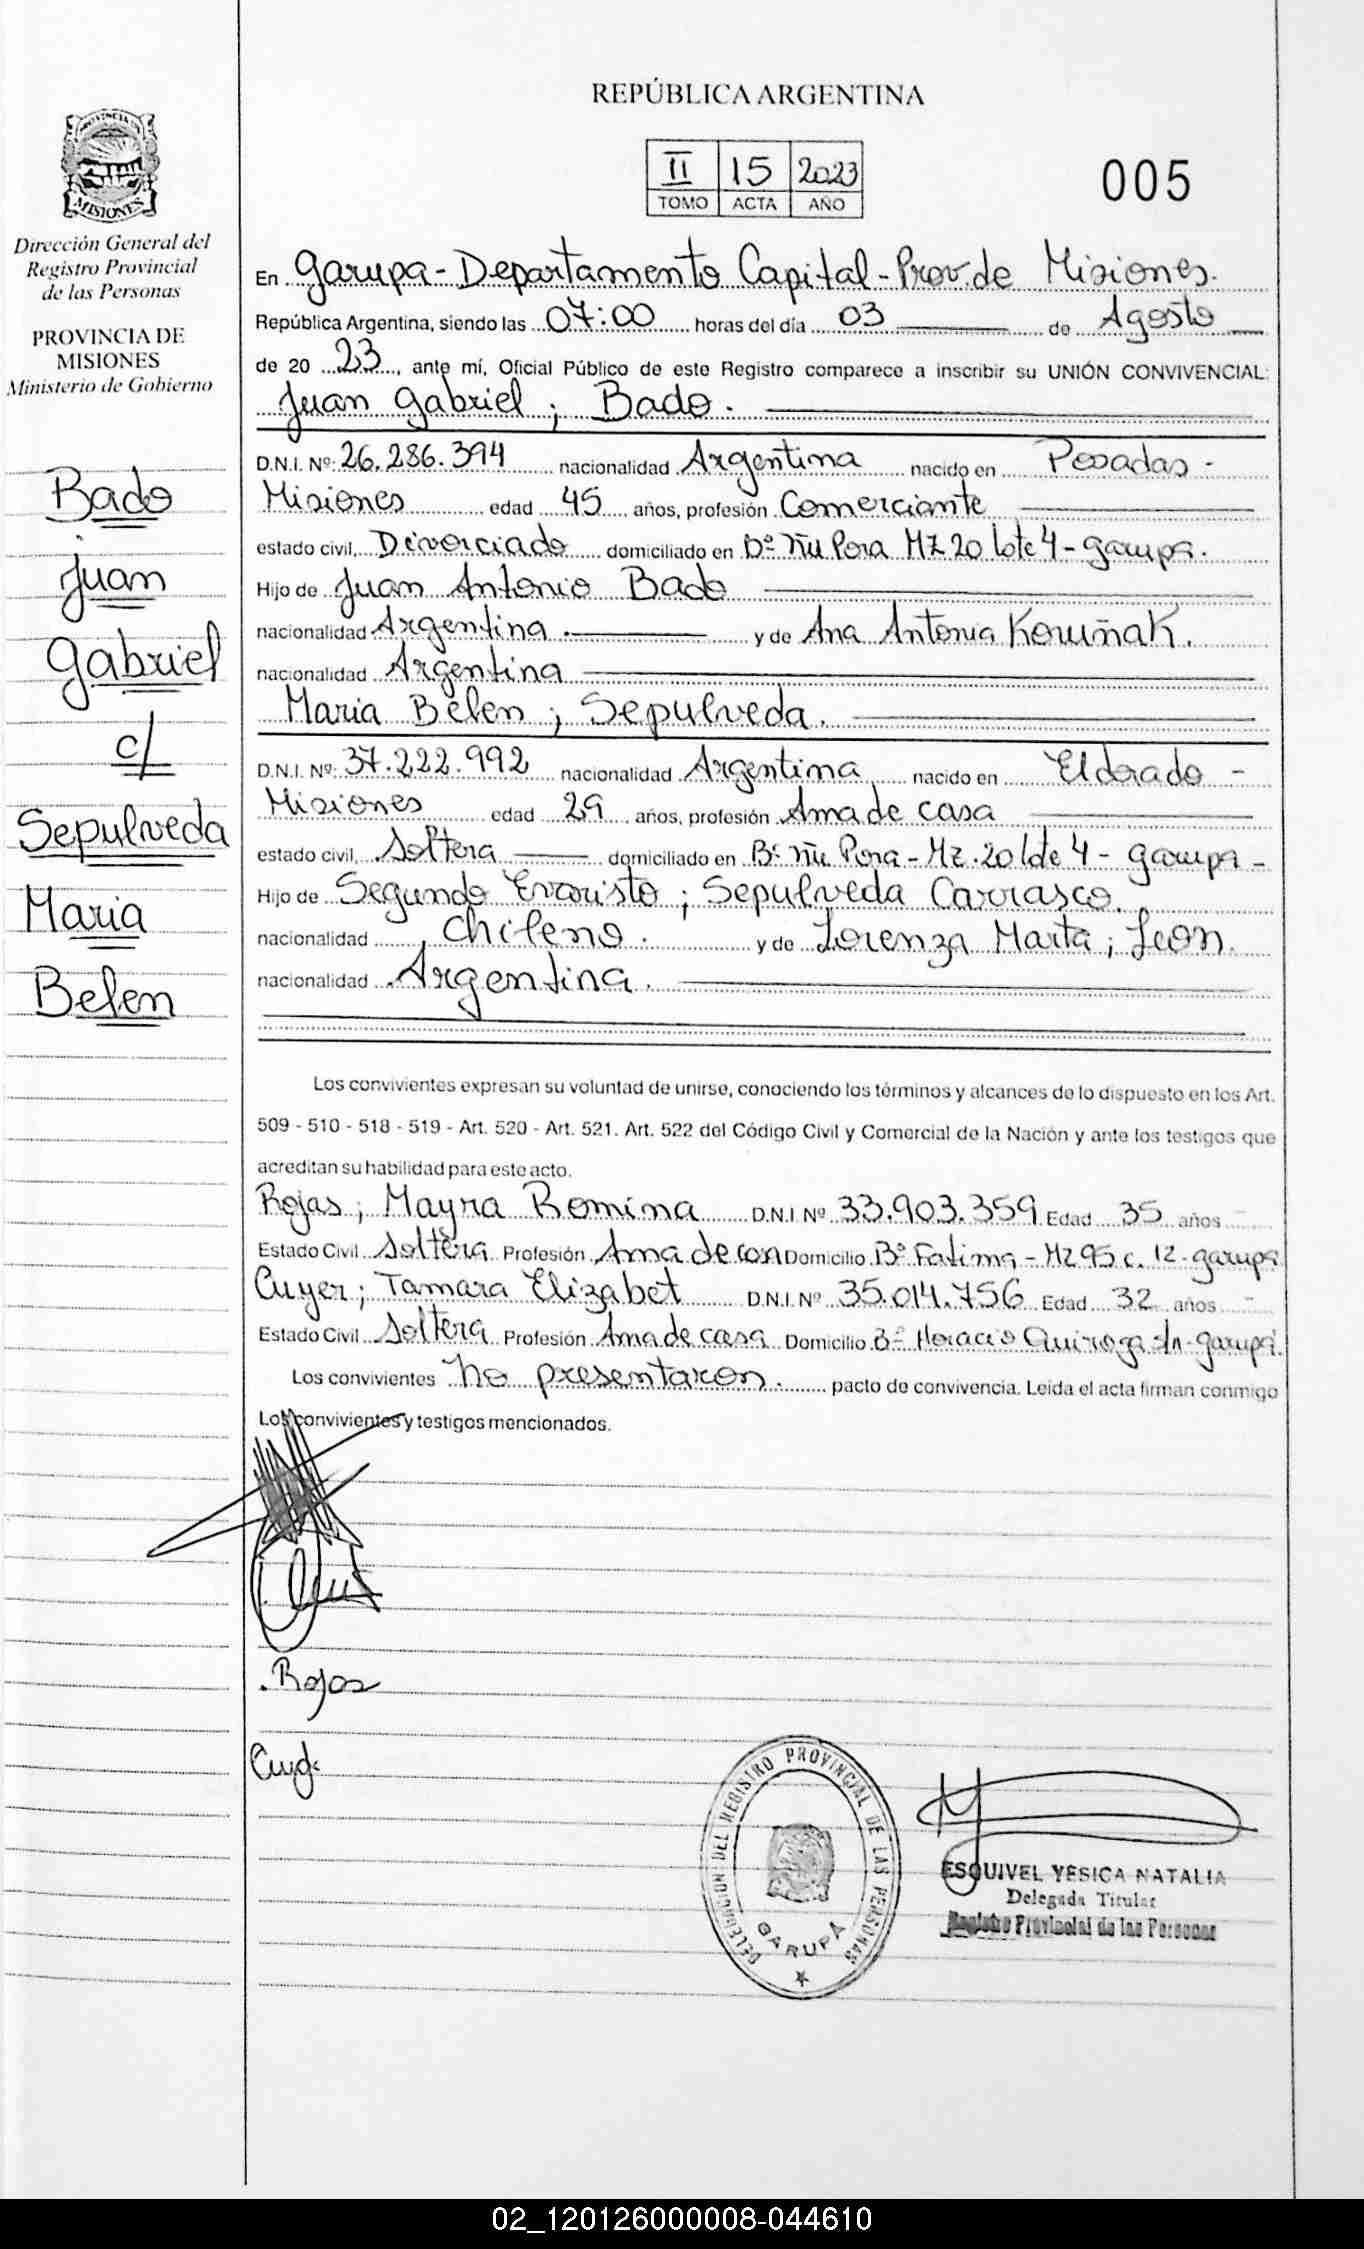 REPÚBLICA ARGENTINA
II 15 2023
TOMO ACTA AÑO
005
MISIONES
Dirección General del
Registro Provincial
de las Personas
PROVINCIA DE
MISIONES
Ministerio de Gobierno
Bado
Juan
Gabriel
c/
Sepulveda
Maria
Belen
En Garupa - Departamento Capital - Prov. de Misiones.
República Argentina, siendo las 07:00 horas del día 03 de Agosto
de 20 23, ante mí, Oficial Público de este Registro comparece a inscribir su UNIÓN CONVIVENCIAL:
Juan Gabriel ; Bado.
D.N.I. Nº: 26.286.394 nacionalidad Argentina nacido en Posadas -
Misiones edad 45 años, profesión Comerciante
estado civil, Divorciado domiciliado en Bº Ñu Pora MZ 20 lote 4 - Garupa.
Hijo de Juan Antonio Bado
nacionalidad Argentina. y de Ana Antonia Koruñak.
nacionalidad Argentina
Maria Belen ; Sepulveda.
D.N.I. Nº: 37.222.992 nacionalidad Argentina nacido en Eldorado -
Misiones edad 29 años, profesión Ama de casa
estado civil, Soltera domiciliado en Bº Ñu Pora - MZ. 20 lote 4 - Garupa -
Hijo de Segundo Evaristo ; Sepulveda Carrasco.
nacionalidad Chileno. y de Lorenza Marta ; Leon.
nacionalidad Argentina.
Los convivientes expresan su voluntad de unirse, conociendo los términos y alcances de lo dispuesto en los Art.
509 - 510 - 518 - 519 - Art. 520 - Art. 521. Art. 522 del Código Civil y Comercial de la Nación y ante los testigos que
acreditan su habilidad para este acto.
Rojas ; Mayra Romina D.N.I. Nº 33.903.359 Edad 35 años
Estado Civil Soltera Profesión Ama de casa Domicilio Bº Fatima - MZ 95 c. 12 - Garupa
Cuyer ; Tamara Elizabet D.N.I. Nº 35.014.756 Edad 32 años
Estado Civil Soltera Profesión Ama de casa Domicilio Bº Horacio Quiroga s/n - Garupa.
Los convivientes No presentaron. pacto de convivencia. Leida el acta firman conmigo
Los convivientes y testigos mencionados.
Rojas
DELEGACION DEL REGISTRO PROVINCIAL DE LAS PERSONAS
GARUPÁ
ESQUIVEL YESICA NATALIA
Delegada Titular
Registro Provincial de las Personas
02_120126000008-044610